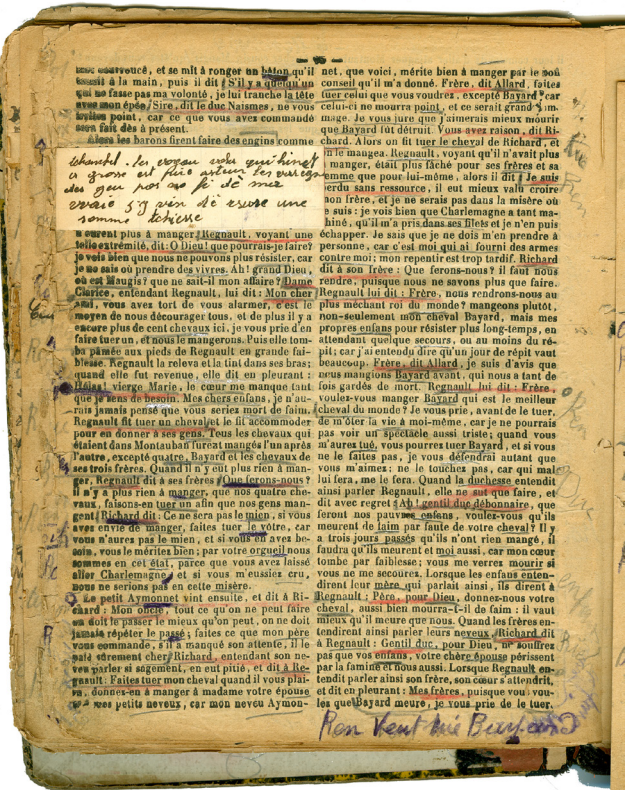 tout courroucé, et se mît à ronger un bâton qu'il
tenait à la main, puis il dit : S'il y a quelqu'un
qui ne fasse pas ma volonté, je lui tranche la tête
avec mon épée. Sire, dit le duc Naismes, ne vous
point, car ce que vous avez commandé
sera fait dès à présent.
Alors les barons firent faire des engins comme
a grose est
une
n'eurent plus à manger. Regnault, voyant une
telle extrémité, dit : O Dieu! que pourrais-je faire?
je vois bien que nous ne pouvons plus résister, car
je ne sais où prendre des vivres. Ah! grand Dieu,
où est Maugis? que ne sait-il mon affaire? Dame
Clarice, entendant Regnault, lui dit : Mon cher
ami, vous avez tort de vous alarmer, c'est le
moyen de nous décourager tous, et de plus il y a
encore plus de cent chevaux ici, je vous prie d'en
faire tuer un, et nous le mangerons. Puis elle tom-
ba pâmée aux pieds de Regnault en grande fai-
blesse. Regnault la releva et la tint dans ses bras;
quand elle fut revenue, elle dit en pleurant :
Hélas! vierge Marie, le cœur me manque tant
que je tiens de besoin. Mes chers enfans, je n'au-
rais jamais pensé que vous seriez mort de faim.
Regnault fit tuer un cheval et le fit accommoder
pour en donner à ses gens. Tous les chevaux qui
étaient dans Montauban furent mangés l'un après
l'autre, excepté quatre, Bayard et les chevaux de
ses trois frères. Quand il n'y eut plus rien à man-
ger, Regnault dit à ses frères : Que ferons-nous?
Il n'y a plus rien à manger, que nos quatre che-
vaux, faisons-en tuer un afin que nos gens man-
gent. Richard dit : Ce ne sera pas le mien, si vous
avez envie de manger, faites tuer le vôtre, car
vous n'aurez pas le mien, et si vous en avez be-
soin, vous le méritez bien; par votre orgueil nous
sommes en cet état, parce que vous avez laissé
aller Charlemagne, et si vous m'eussiez cru,
nous ne serions pas en cette misère.
Le petit Aymonnet vint ensuite, et dit à Ri-
chard : Mon oncle, tout ce qu'on ne peut faire
on doit le passer le mieux qu'on peut, on ne doit
jamais répéter le passé; faites ce que mon père
vous commande, s'il a manqué son attente, il le
paie sûrement cher. Richard, entendant son ne-
veu parler si sagement, en eut pitié, et dit à Re-
gnault : Faites tuer mon cheval quand il vous plai-
ra, donnez-en à manger à madame votre épouse
et à mes petits neveux, car mon neveu Aymon-
net, que voici, mérite bien à manger par le bon
conseil qu'il m'a donné. Frère, dit Allard, faites
tuer celui que vous voudrez, excepté Bayard, car
celui-ci ne mourra point, et ce serait grand dom-
mage. Je vous jure que j'aimerais mieux mourir
que Bayard fût détruit. Vous avez raison, dit Ri-
chard. Alors on fit tuer le cheval de Richard, et
on le mangea. Regnault, voyant qu'il n'avait plus
à manger, était plus fâché pour ses frères et sa
femme que pour lui-même, alors il dit : Je suis
perdu sans ressource, il eut mieux valu croire
mon frère, et je ne serais pas dans la misère où
je suis : je vois bien que Charlemagne a tant ma-
chiné, qu'il m'a pris dans ses filets et je n'en puis
échapper. Je sais que je ne dois m'en prendre à
personne, car c'est moi qui ai fourni des armes
contre moi; mon repentir est trop tardif. Richard
dit à son frère : Que ferons-nous? il faut nous
rendre, puisque nous ne savons plus que faire.
Regnault lui dit : Frère, nous rendrons-nous au
plus méchant roi du monde? mangeons plutôt,
non-seulement mon cheval Bayard, mais mes
propres enfans pour résister plus long-temps, en
attendant quelque secours, ou au moins du ré-
pit; car j'ai entendu dire qu'un jour de répit vaut
beaucoup. Frère, dit Allard, je suis d'avis que
nous mangions Bayard avant, qui nous a tant de
fois gardés de mort. Regnault lui dit : Frère,
voulez-vous manger Bayard qui est le meilleur
cheval du monde? Je vous prie, avant de le tuer,
de m'ôter la vie à moi-même, car je ne pourrais
pas voir un spectacle aussi triste; quand vous
m'aurez tué, vous pourrez tuer Bayard, et si vous
ne le faites pas, je vous défendrai autant que
vous m'aimez; ne le touchez pas, car qui mal
lui fera, me le fera. Quand la duchesse entendit
ainsi parler Regnault, elle ne sut que faire, et
dit avec regret : Ah! gentil duc débonnaire, que
feront nos pauvres enfans, voulez-vous qu'ils
meurent de faim par faute de votre cheval? Il y
a trois jours passés qu'ils n'ont rien mangé, il
faudra qu'ils meurent et moi aussi, car mon cœur
tombe par faiblesse; vous me verrez mourir si
vous ne me secourez. Lorsque les enfans enten-
dirent leur mère qui parlait ainsi, ils dirent à
Regnault : Père, pour Dieu, donnez-votre
cheval, aussi bien mourra-t-il de faim : il vaut
mieux qu'il meure que nous. Quand les frères en-
tendirent ainsi parler leurs neveux, Richard dit
à Regnault : Gentil duc, pour Dieu, ne souffrez
pas que vos enfans, votre chère épouse périssent
par la famine et nous aussi. Lorsque Regnault en-
tendit parler ainsi son frère, son cœur s'attendrit,
et dit en pleurant : Mes frères, puisque vou vou-
lez que Bayard meure, je vous prie de le tuer.